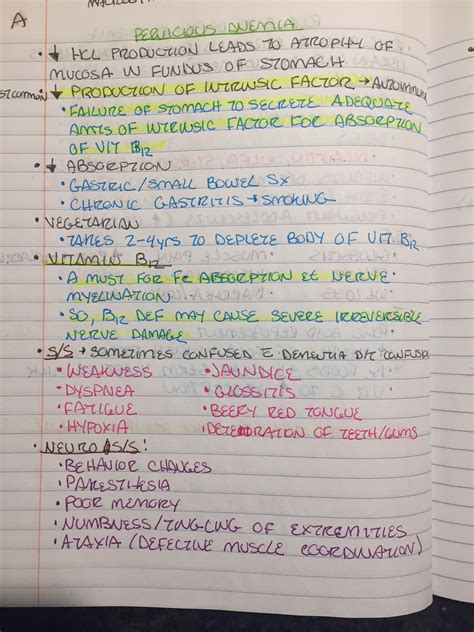 A
PERNICIOUS ANEMIA
• ↓ HCL PRODUCTION LEADS TO ATROPHY OF
MUCOSA IN FUNDUS OF STOMACH
• ↓ PRODUCTION OF INTRINSIC FACTOR → AUTOIMMUN
• FAILURE OF STOMACH TO SECRETE ADEQUATE
AMTS OF INTRINSIC FACTOR FOR ABSORPTION
OF VIT B12
• ↓ ABSORPTION
• GASTRIC/SMALL BOWEL SX
• CHRONIC GASTRITIS → SMOKING
• VEGETARIAN
• TAKES 2-4yrs TO DEPLETE BODY OF VIT B12
• VITAMIN B12
• A MUST FOR Fe ABSORPTION et NERVE
MYELINATION
• SO, B12 DEF MAY CAUSE SEVERE IRREVERSIBLE
NERVE DAMAGE
• S/S → SOMETIMES CONFUSED c̄ DEMENTIA D/T CONFUSION
• WEAKNESS • JAUNDICE
• DYSPNEA • GLOSSITIS
• FATIGUE • BEEFY RED TONGUE
• HYPOXIA • DETERIORATION OF TEETH/GUMS
• NEURO S/S!
• BEHAVIOR CHANGES
• PARESTHESIA
• POOR MEMORY
• NUMBNESS/TINGLING OF EXTREMITIES
• ATAXIA (DEFECTIVE MUSCLE COORDINATION)